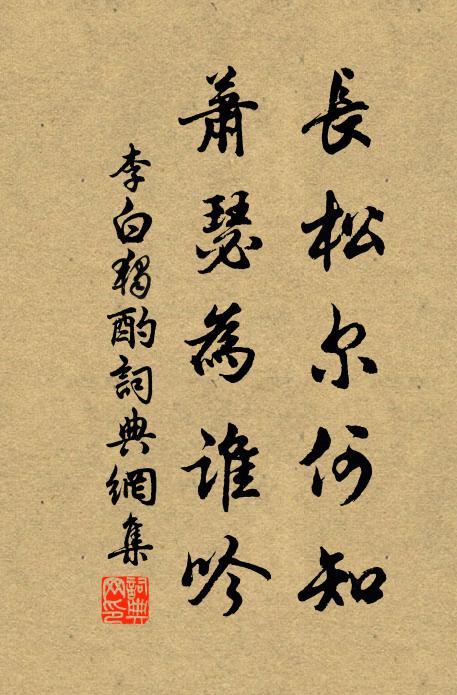 長松尔何知
蕭瑟為誰吟
李白獨酌詞典網集
詞典
网印